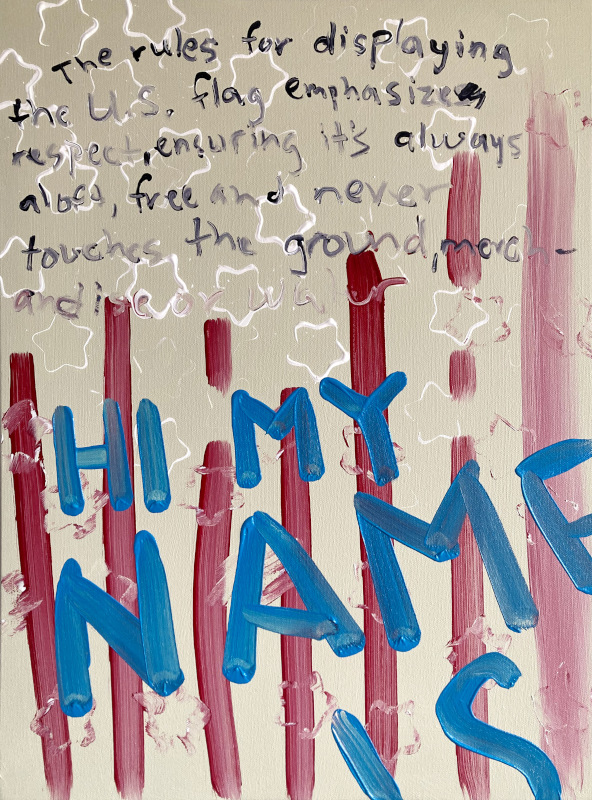 The rules for displaying
the U.S. flag emphasizes
respect, ensuring it's always
aloft, free and never
touches the ground, merch-
andise or water
HI MY
NAME
IS